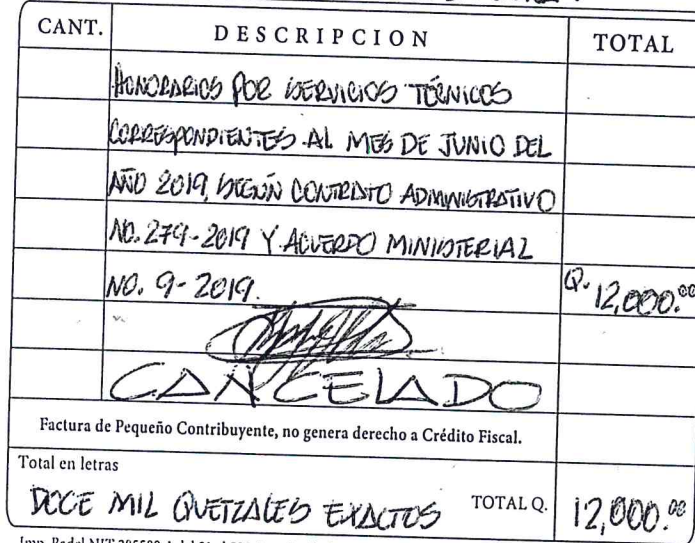 CANT. DESCRIPCION TOTAL
HONORARIOS POR SERVICIOS TÉCNICOS
CORRESPONDIENTES AL MES DE JUNIO DEL
AÑO 2019, SEGÚN CONTRATO ADMINISTRATIVO
NO. 279-2019 Y ACUERDO MINISTERIAL
NO. 9-2019. Q. 12,000.00
CANCELADO
Factura de Pequeño Contribuyente, no genera derecho a Crédito Fiscal.
Total en letras
DOCE MIL QUETZALES EXACTOS TOTAL Q. 12,000.00